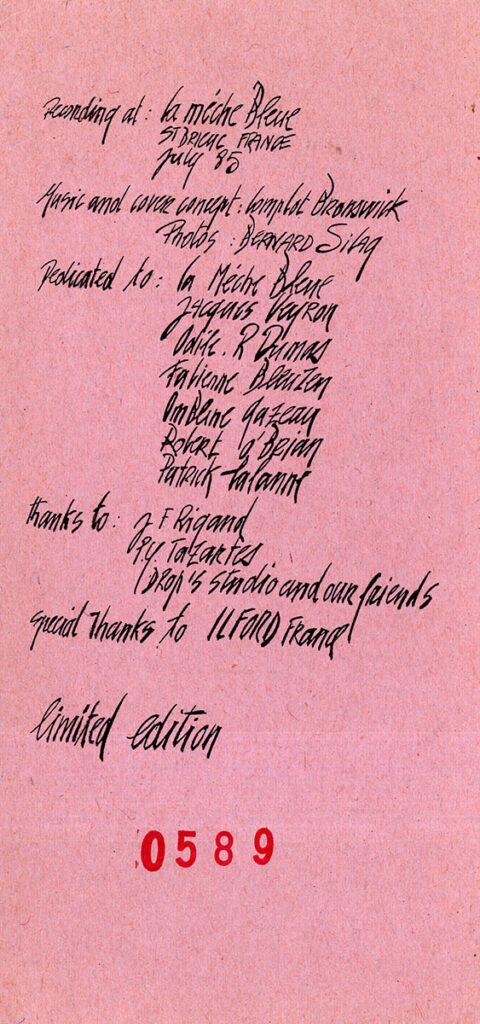 Recording at : la méche Bleue
ST BRIEUC FRANCE
july 85
Music and cover concept : Complot Bronswick
Photos : BERNARD Silaq
Dedicated to : la Méche Bleue
Jacques Veyron
Odile . R Dumas
Fabienne Bleuzen
Ombline Gazeau
Robert O'Brian
Patrick Lalanne
thanks to : J F Rigand
P.Y. Tazartes
DROP'S studio and our friends
special Thanks to ILFORD France
limited edition
0589